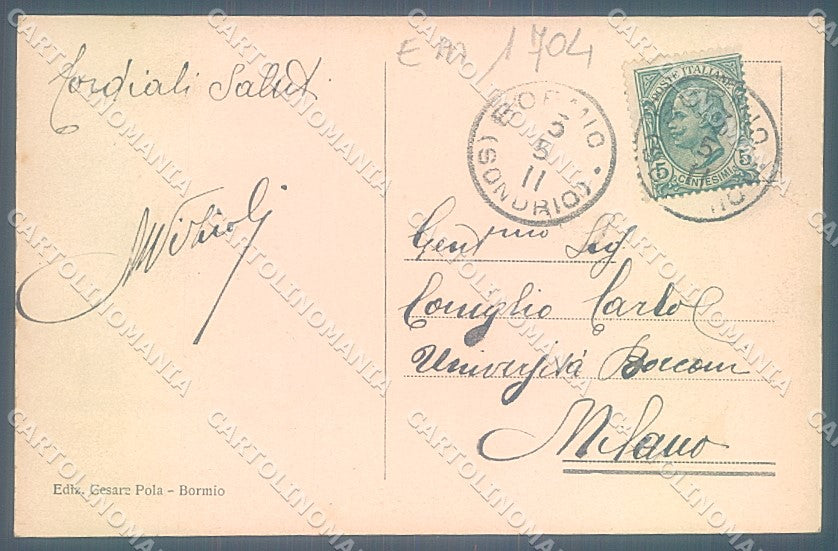 Cordiali Saluti
E 1704
BORMIO
(SONDRIO)
5
5
11
POSTE ITALIANE
5 CENTESIMI 5
Gent.mo Sig
Coniglio Carlo
Università Bocconi
Milano
Ediz. Cesare Pola - Bormio
CARTOLINOMANIA